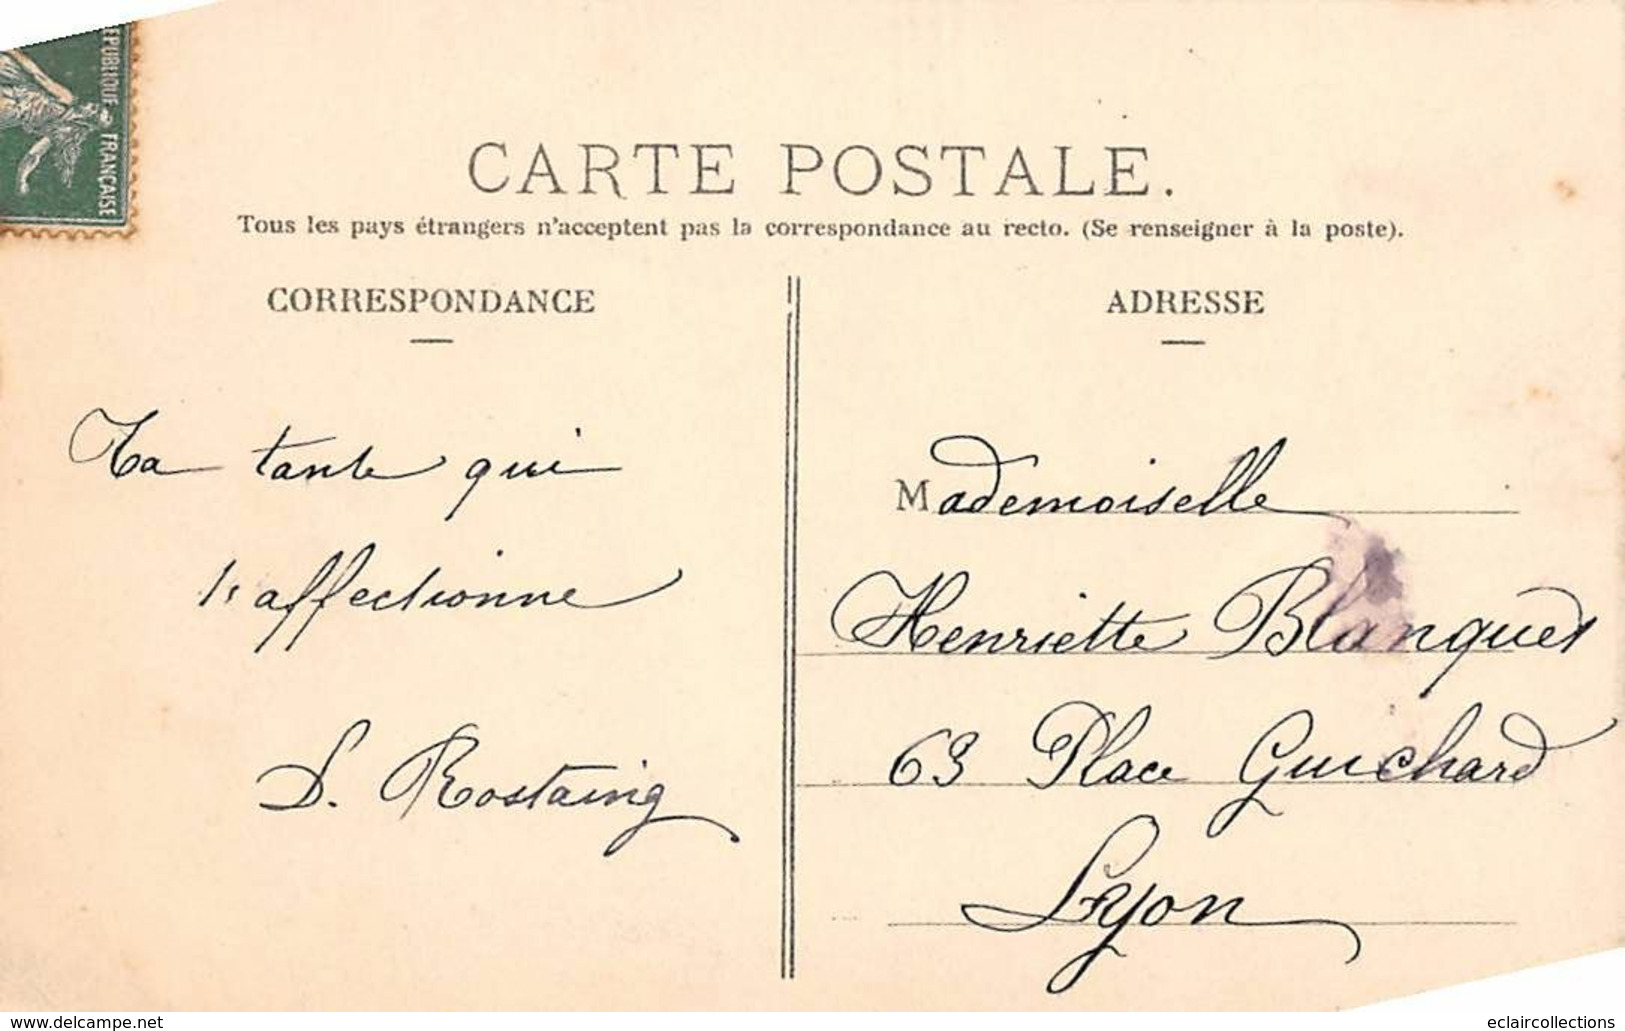 RÉPUBLIQUE FRANÇAISE
CARTE POSTALE.
Tous les pays étrangers n'acceptent pas la correspondance au recto. (Se renseigner à la poste).
CORRESPONDANCE
Ta tante qui
t'affectionne
S. Rostaing
ADRESSE
Mademoiselle
Henriette Blanquet
63 Place Guichard
Lyon
www.delcampe.net
eclaircollections